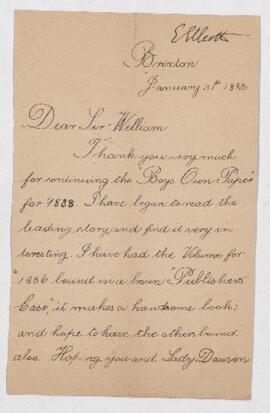 E Elliott
Brixton
January 31st 1888
Dear Sir William
Thank you very much
for continuing the "Boys Own Paper"
for 1888 I have begun to read the
leading story, and find it very in-
teresting. I have had the Volume for
"1886 bound in a brown "Publishers
Case," it makes a handsome book;
and hope to have the others bound
also. Hoping you and Lady Dawson